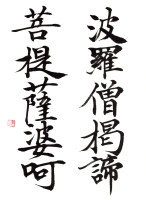 波羅僧掲諦
菩提薩婆呵